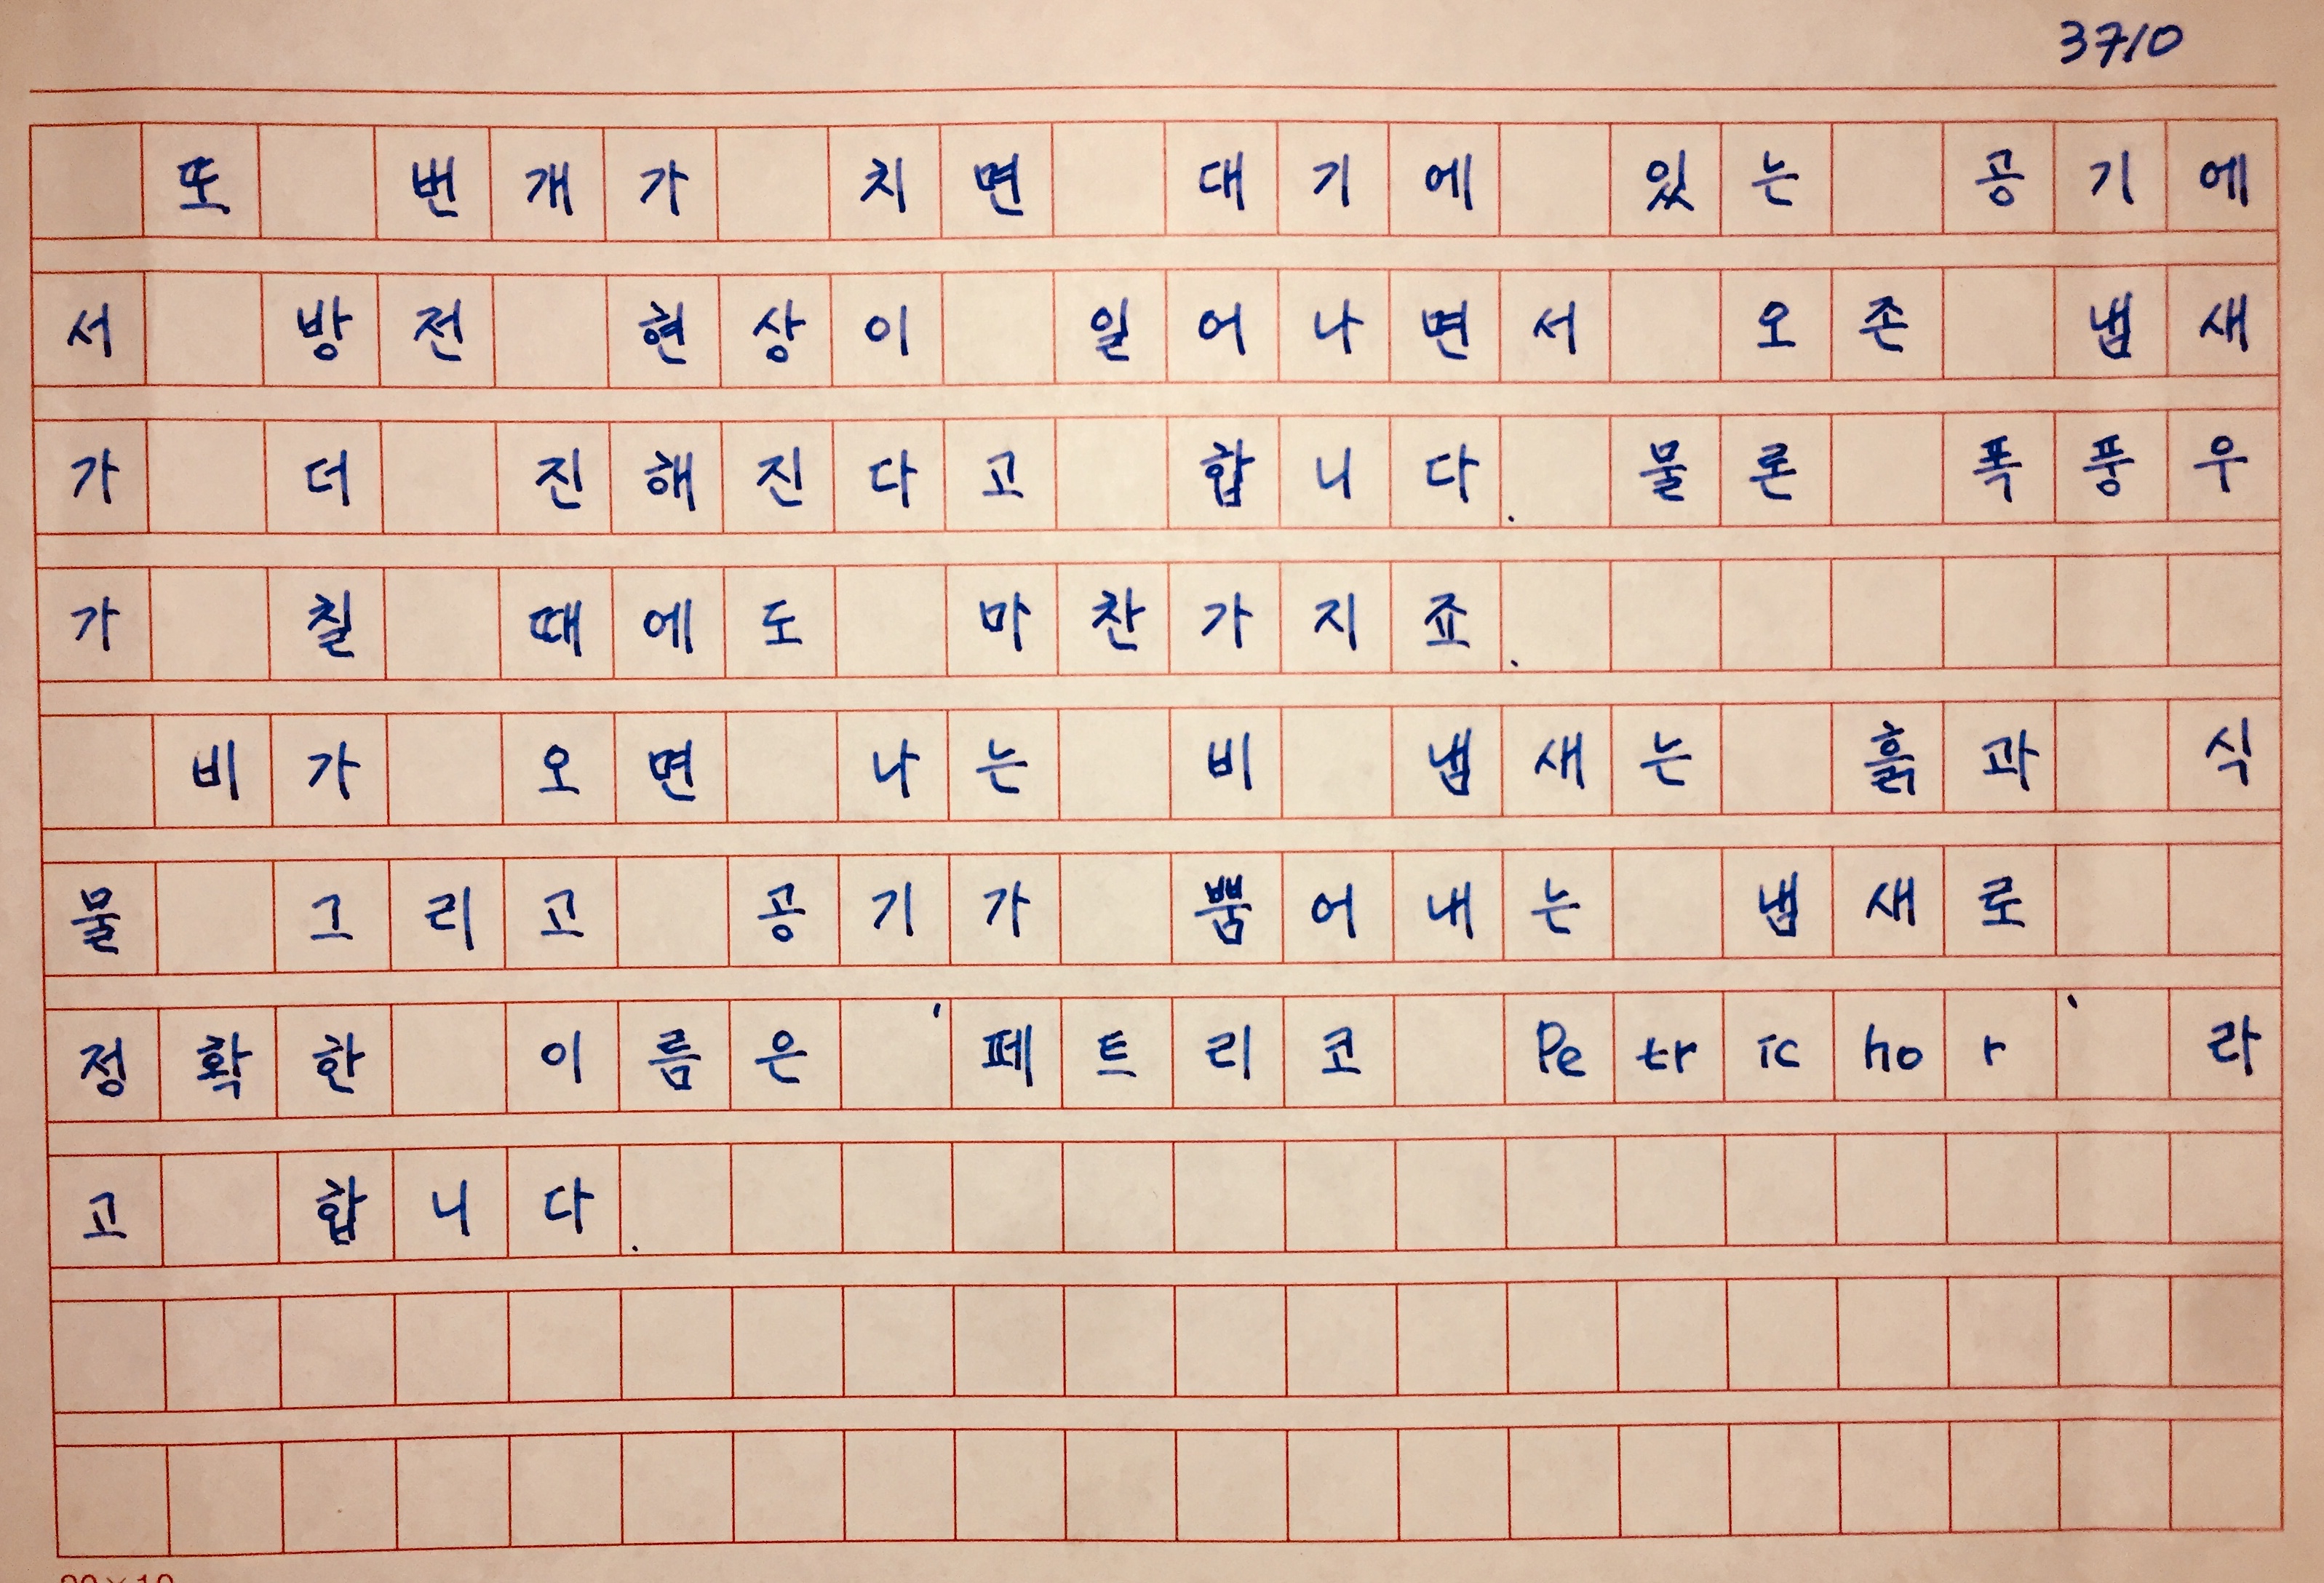 3710
또 번개가 치면 대기에 있는 공기에
서 방전 현상이 일어나면서 오존 냄새
가 더 진해진다고 합니다. 물론 폭풍우
가 칠 때에도 마찬가지죠.
비가 오면 나는 비 냄새는 흙과 식
물 그리고 공기가 뿜어내는 냄새로
정확한 이름은 '페트리코 Petrichor' 라
고 합니다.